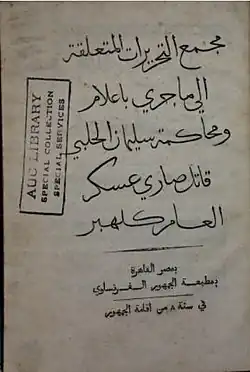 مجمع التحريرات المتعلقة
الي ماجري باعلام
ومحاكمة سليمان الحلبي
قاتل صاري عسكر
العام كلهبر
بمصر القاهرة
بمطبعة الجمهور الفرنساوي
في سنة ٨ من اقامة الجمهور
AUC LIBRARY
SPECIAL COLLECTION
SPECIAL SERVICES